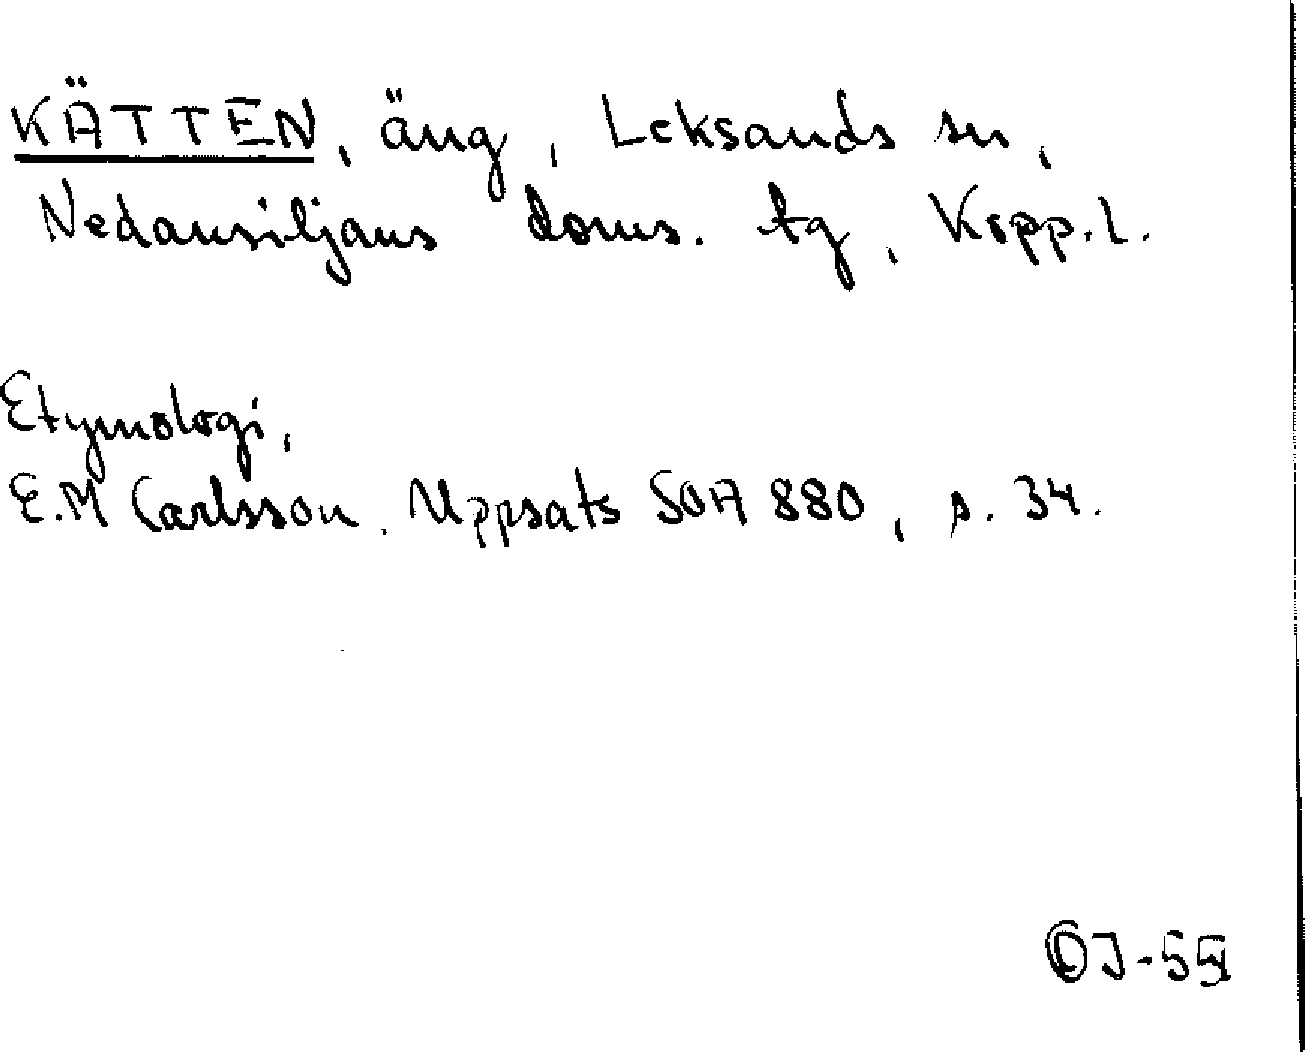 KÄTTEN, äng, Leksands sn,
Nedansiljans doms. tg, Kopp.l.
Etymologi,
E.M Carlsson. Uppsats SOA 880, s. 34.